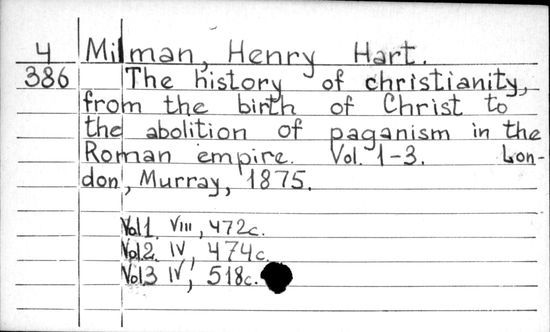 4 Milman, Henry Hart.
386 The history of christianity,
from the birth of Christ to
the abolition of paganism in the
Roman empire. Vol. 1-3. Lon-
don, Murray, 1875.
Vol1. VIII, 472c.
Vol.2. IV, 474c.
Vol3 IV, 518c.